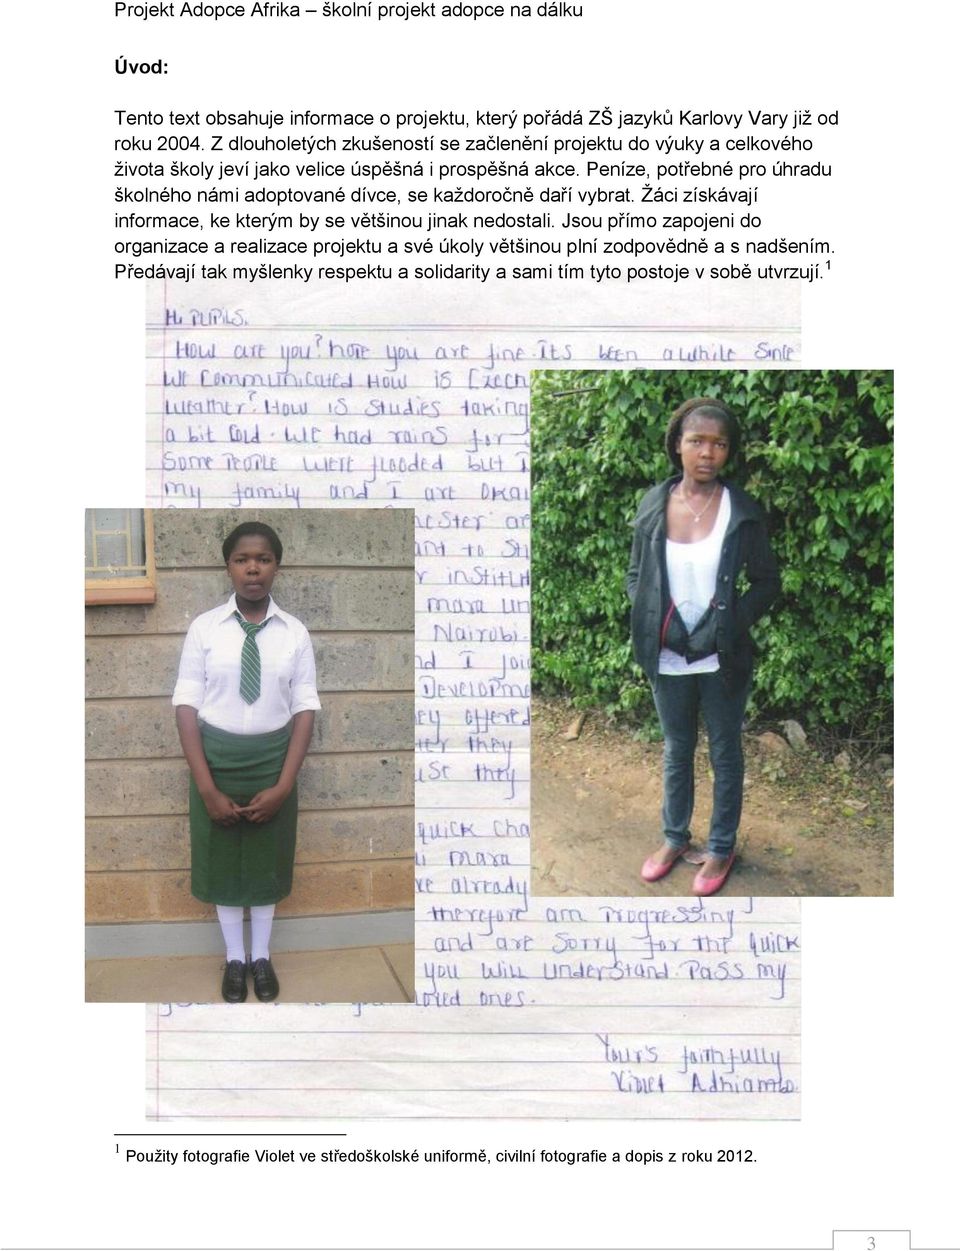 Projekt Adopce Afrika – školní projekt adopce na dálku
Úvod:
Tento text obsahuje informace o projektu, který pořádá ZŠ jazyků Karlovy Vary již od
roku 2004. Z dlouholetých zkušeností se začlenění projektu do výuky a celkového
života školy jeví jako velice úspěšná i prospěšná akce. Peníze, potřebné pro úhradu
školného námi adoptované dívce, se každoročně daří vybrat. Žáci získávají
informace, ke kterým by se většinou jinak nedostali. Jsou přímo zapojeni do
organizace a realizace projektu a své úkoly většinou plní zodpovědně a s nadšením.
Předávají tak myšlenky respektu a solidarity a sami tím tyto postoje v sobě utvrzují.1
Hi PUPILS.
How are you? hope you are fine. Its been a while Since
We Communicated How is Czech
Weather? How is Studies taking
a bit Cold. We had rains for
Some People were flooded but I
my family and I are Okai
to St
institut
mara un
Nairobi.
nd I joi
Developme
ey offered
ter they
use they
quick Cha
i mara
ve already
therefore am Progressing
and are Sorry for the quick
you will understand. Pass my
loved ones.
Your's faithfully
Violet Adhiambo.
1 Použity fotografie Violet ve středoškolské uniformě, civilní fotografie a dopis z roku 2012.
3